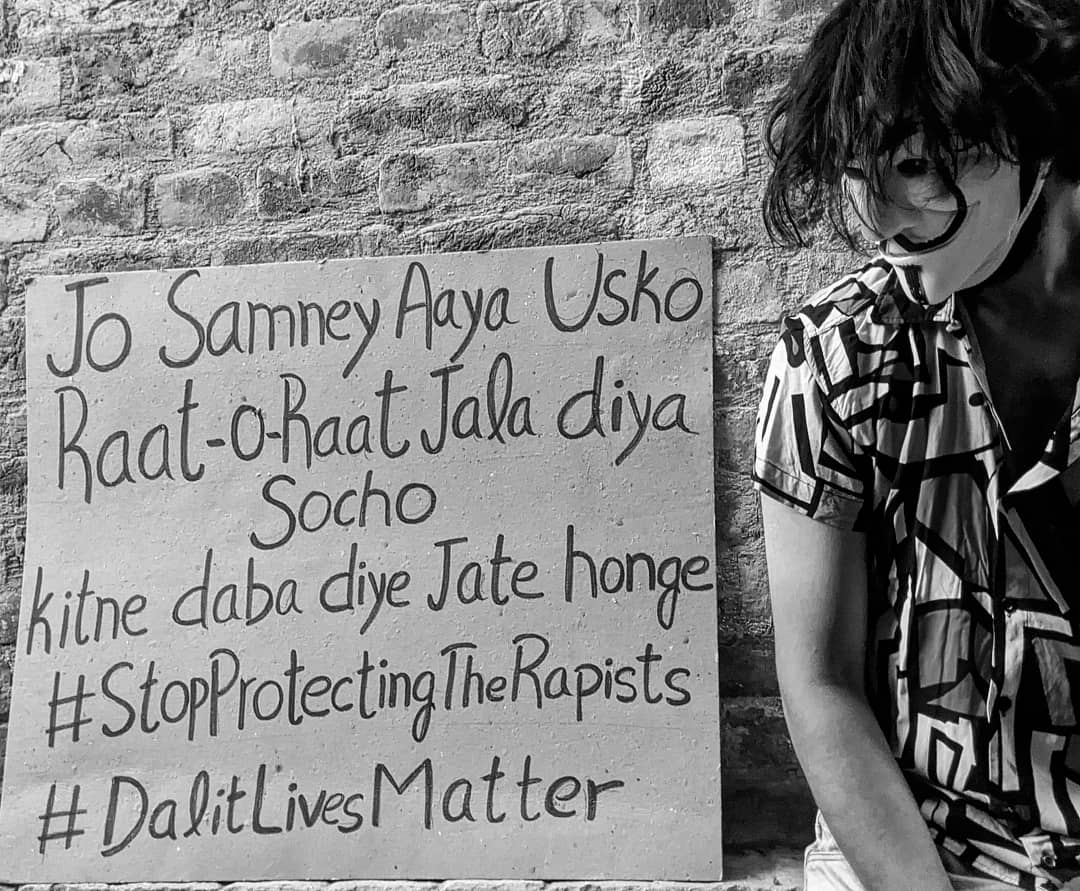 Jo Samney Aaya Usko
Raat-O-Raat Jala diya
Socho
kitne daba diye Jate honge
#StopProtectingTheRapists
#DalitLivesMatter